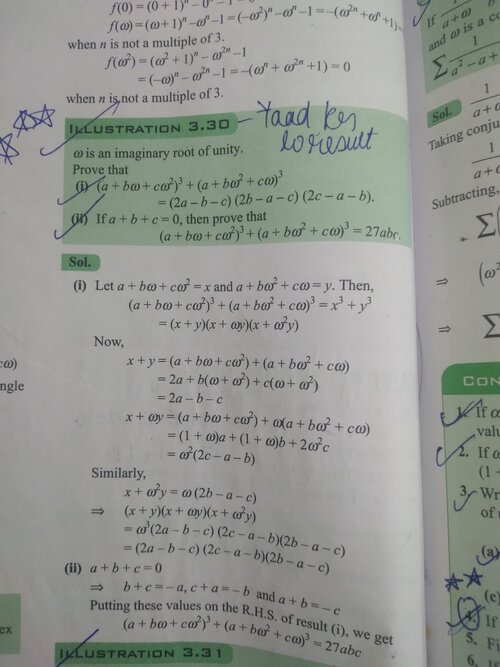 f(0) = (0 + 1)ⁿ
f(ω) = (ω + 1)ⁿ − ωⁿ − 1 = (−ω²)ⁿ − ωⁿ − 1 = −(ω²ⁿ + ωⁿ + 1)
when n is not a multiple of 3.
f(ω²) = (ω² + 1)ⁿ − ω²ⁿ − 1
= (−ω)ⁿ − ω²ⁿ − 1 = −(ωⁿ + ω²ⁿ + 1) = 0
when n is not a multiple of 3.
ILLUSTRATION 3.30 – Yaad kar
lo result
ω is an imaginary root of unity.
Prove that
(i) (a + bω + cω²)³ + (a + bω² + cω)³
= (2a − b − c) (2b − a − c) (2c − a − b).
(ii) If a + b + c = 0, then prove that
(a + bω + cω²)³ + (a + bω² + cω)³ = 27abc.
Sol.
(i) Let a + bω + cω² = x and a + bω² + cω = y. Then,
(a + bω + cω²)³ + (a + bω² + cω)³ = x³ + y³
= (x + y)(x + ωy)(x + ω²y)
Now,
x + y = (a + bω + cω²) + (a + bω² + cω)
= 2a + b(ω + ω²) + c(ω + ω²)
= 2a − b − c
x + ωy = (a + bω + cω²) + ω(a + bω² + cω)
= (1 + ω)a + (1 + ω)b + 2ω²c
= ω²(2c − a − b)
Similarly,
x + ω²y = ω (2b − a − c)
⇒ (x + y)(x + ωy)(x + ω²y)
= ω³(2a − b − c) (2c − a − b)(2b − a − c)
= (2a − b − c) (2c − a − b)(2b − a − c)
(ii) a + b + c = 0
⇒ b + c = − a, c + a = − b and a + b = − c
Putting these values on the R.H.S. of result (i), we get
(a + bω + cω²)³ + (a + bω² + cω)³ = 27abc
ILLUSTRATION 3.31
cω)
ngle
ex
If
a + ω
and ω is a c
Σ
a² − a +
Sol.
1
a + c
Taking conju
1
a + c
Subtracting,
Σ
⇒ (ω²
⇒ Σ
CON
1. If ω
valu
2. If ω
(1 −
3. Wr
of
(a)
(c)
4. If
5.
6.